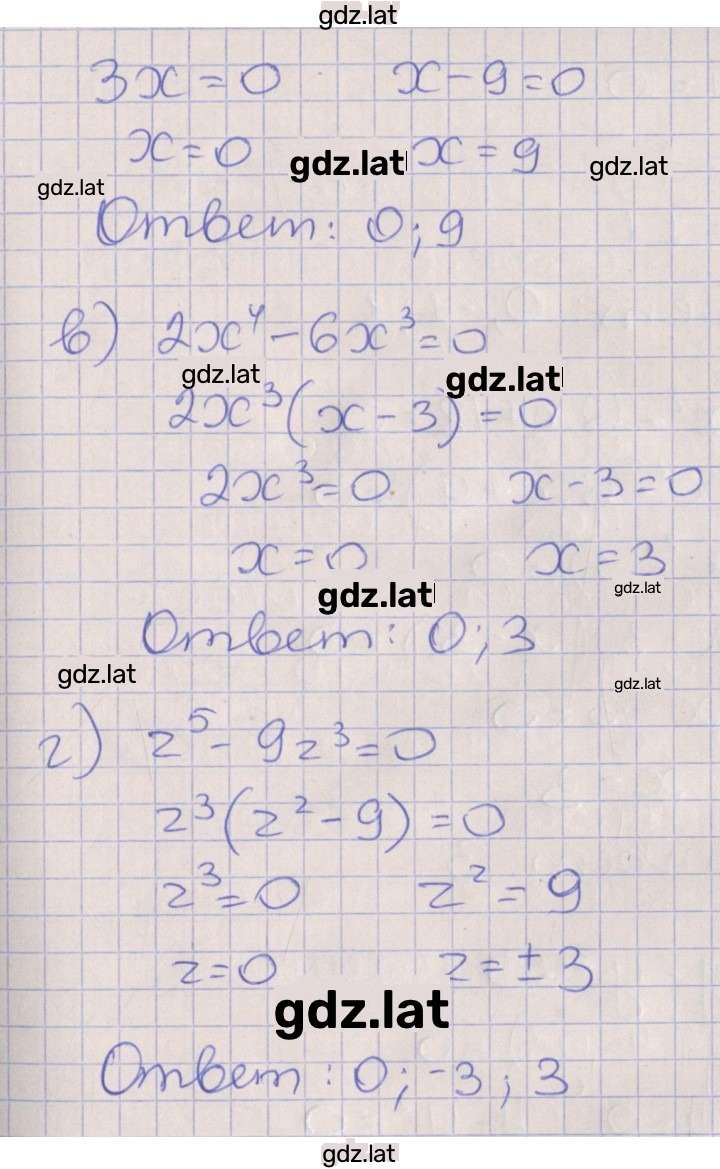 gdz.lat
3x = 0 x - 9 = 0
x = 0 gdz.lat x = 9 gdz.lat
gdz.lat
Ответ: 0; 9
в) 2x⁴ - 6x³ = 0
gdz.lat gdz.lat
2x³(x - 3) = 0
2x³ = 0 x - 3 = 0
x = 0 x = 3
gdz.lat gdz.lat
Ответ: 0; 3
gdz.lat gdz.lat
г) z⁵ - 9z³ = 0
z³(z² - 9) = 0
z³ = 0 z² = 9
z = 0 z = ± 3
gdz.lat
Ответ: 0; -3; 3
gdz.lat